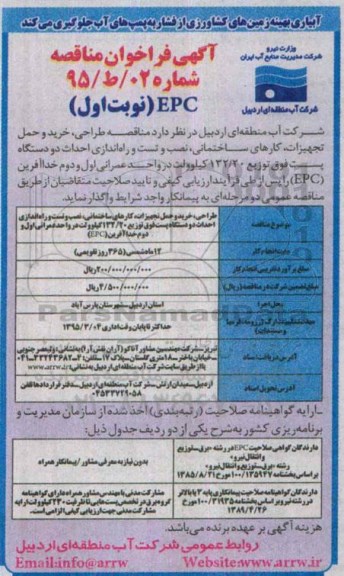 آبیاری بهینه زمین های کشاورزی از فشار به پمپ های آب جلوگیری می کند
وزارت نیرو
شرکت مدیریت منابع آب ایران
شرکت آب منطقه ای اردبیل
آگهی فراخوان مناقصه
شماره ۰۲/ط/۹۵
EPC (نوبت اول)
شرکت آب منطقه ای اردبیل در نظر دارد مناقصه طراحی، خرید و حمل
تجهیزات، کارهای ساختمانی، نصب و تست و راه اندازی احداث دو دستگاه
پست فوق توزیع ۱۳۲/۲۰ کیلوولت در واحد عمرانی اول و دوم خداآفرین
(EPC) را پس از طی فرآیند ارزیابی کیفی و تایید صلاحیت متقاضیان از طریق
مناقصه عمومی دو مرحله ای به پیمانکار واجد شرایط واگذار نماید.
موضوع مناقصه
طراحی، خرید و حمل تجهیزات، کارهای ساختمانی، نصب و تست و راه اندازی
احداث دو دستگاه پست فوق توزیع ۱۳۲/۲۰ کیلوولت در واحد عمرانی اول و
دوم خداآفرین (EPC)
مدت انجام کار
۱۲ ماه شمسی (۳۶۵ روز تقویمی)
مبلغ برآورد تقریبی انجام کار
۲۰۰/۰۰۰/۰۰۰/۰۰۰ ریال
مبلغ تضمین شرکت در مناقصه (ریال)
۴/۵۰۰/۰۰۰/۰۰۰ ریال
محل اجرا
استان اردبیل - شهرستان پارس آباد
حداکثر تا پایان وقت اداری ۱۳۹۵/۳/۰۲
آدرس دریافت اسناد
آدرس تحویل اسناد
اردبیل - میدان ارتش - شرکت آب منطقه ای اردبیل - دفتر قراردادها تلفن
- ارایه گواهینامه صلاحیت (رتبه بندی) اخذ شده از سازمان مدیریت و
برنامه ریزی کشور به شرح یکی از دو ردیف جدول ذیل:
دارندگان گواهی صلاحیت EPC در رشته «برق، توزیع
و انتقال نیرو»
بدون نیاز به معرفی مشاور / پیمانکار همراه
دارندگان گواهینامه صلاحیت پیمانکاری پایه ۲ یا بالاتر
مشارکت مدنی با مهندس مشاور همراه دارای گواهینامه
هزینه آگهی بر عهده برنده می باشد.
روابط عمومی شرکت آب منطقه ای اردبیل
Email:info@arrw
Website:www.arrw.ir